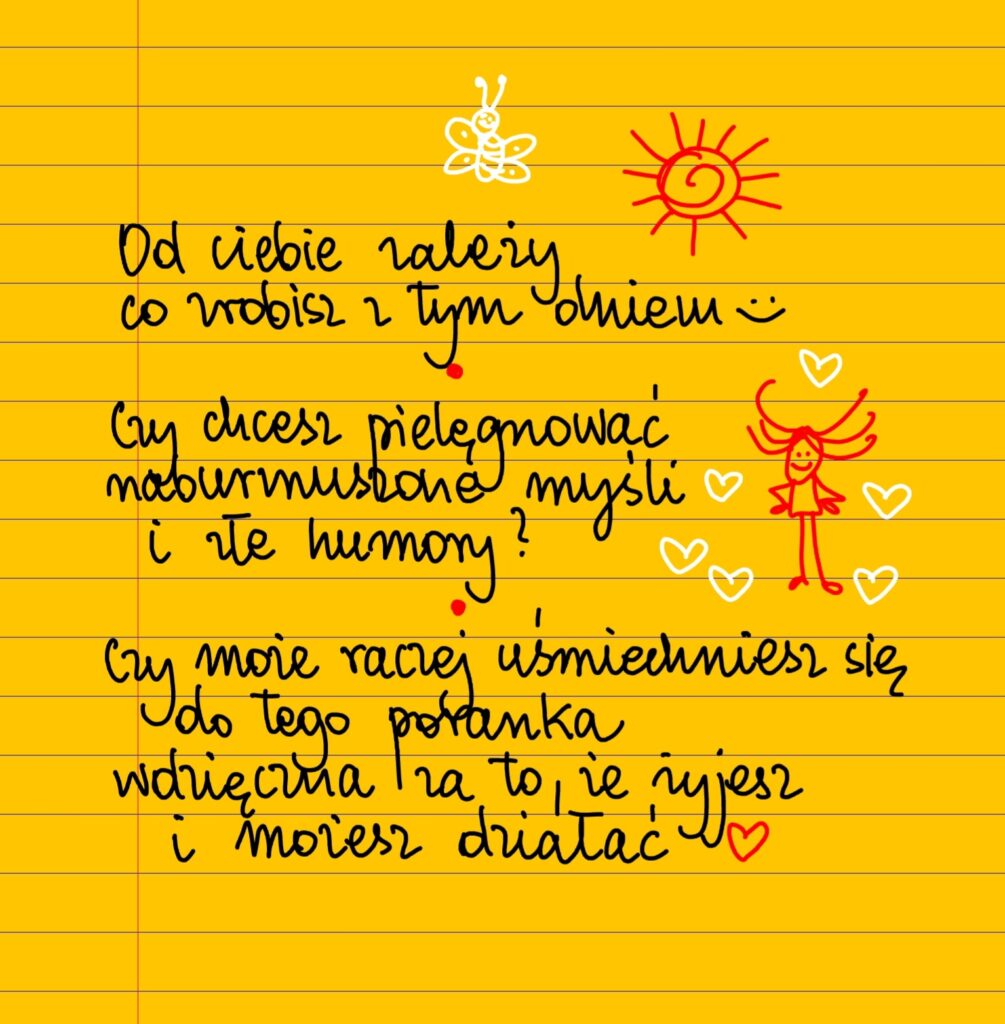 Od ciebie zależy
co zrobisz z tym dniem :)
Czy chcesz pielęgnować
naburmuszone myśli
i złe humory?
Czy może raczej uśmiechniesz się
do tego poranka
wdzięczna za to, że żyjesz
i możesz działać